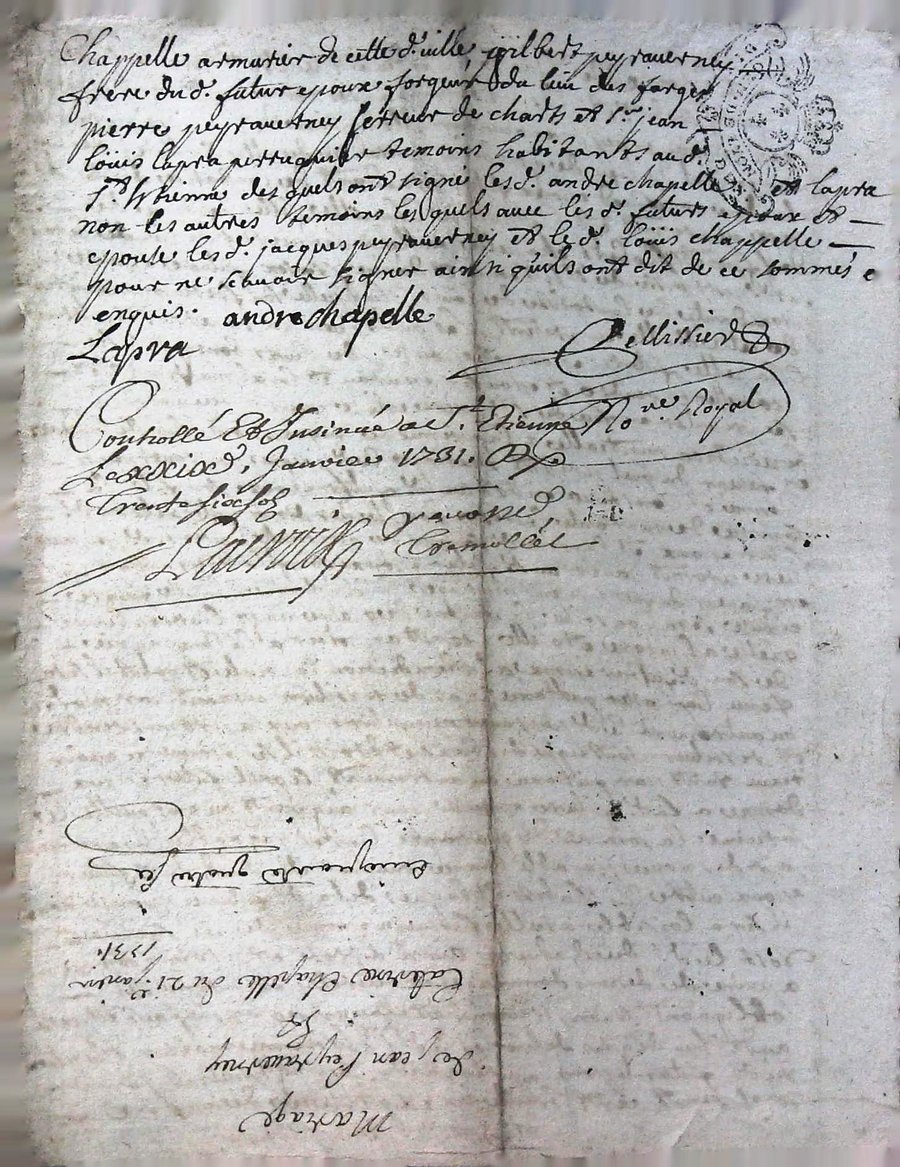 Chappelle armurier de cette d. ville, gilbert peyraverney
frere du d. futur epoux forgeur du lieu des forges
pierre peyraverney serreur de charts et sr. jean
louis lapra perruquier temoins habitants aud.
st. Etienne desquels ont signé les d. andre chapelle et lapra
non les autres temoins lesquels avec les d. futurs epoux et
epouse les d. jacques peyraverney et le d. louis chappelle
pour ne scavoir signer ainsi quils ont dit de ce sommés e
enquis. andre chapelle
Lapra
Pellissier
Controllé Et Insinué a St. Etienne No.re Royal
Le xxixe. Janvier 1731. R
trente six sols
Mariage
de jean Peyraverney
Et
Caterine Chapelle du 21e janvier
1731.
cinquante quatre